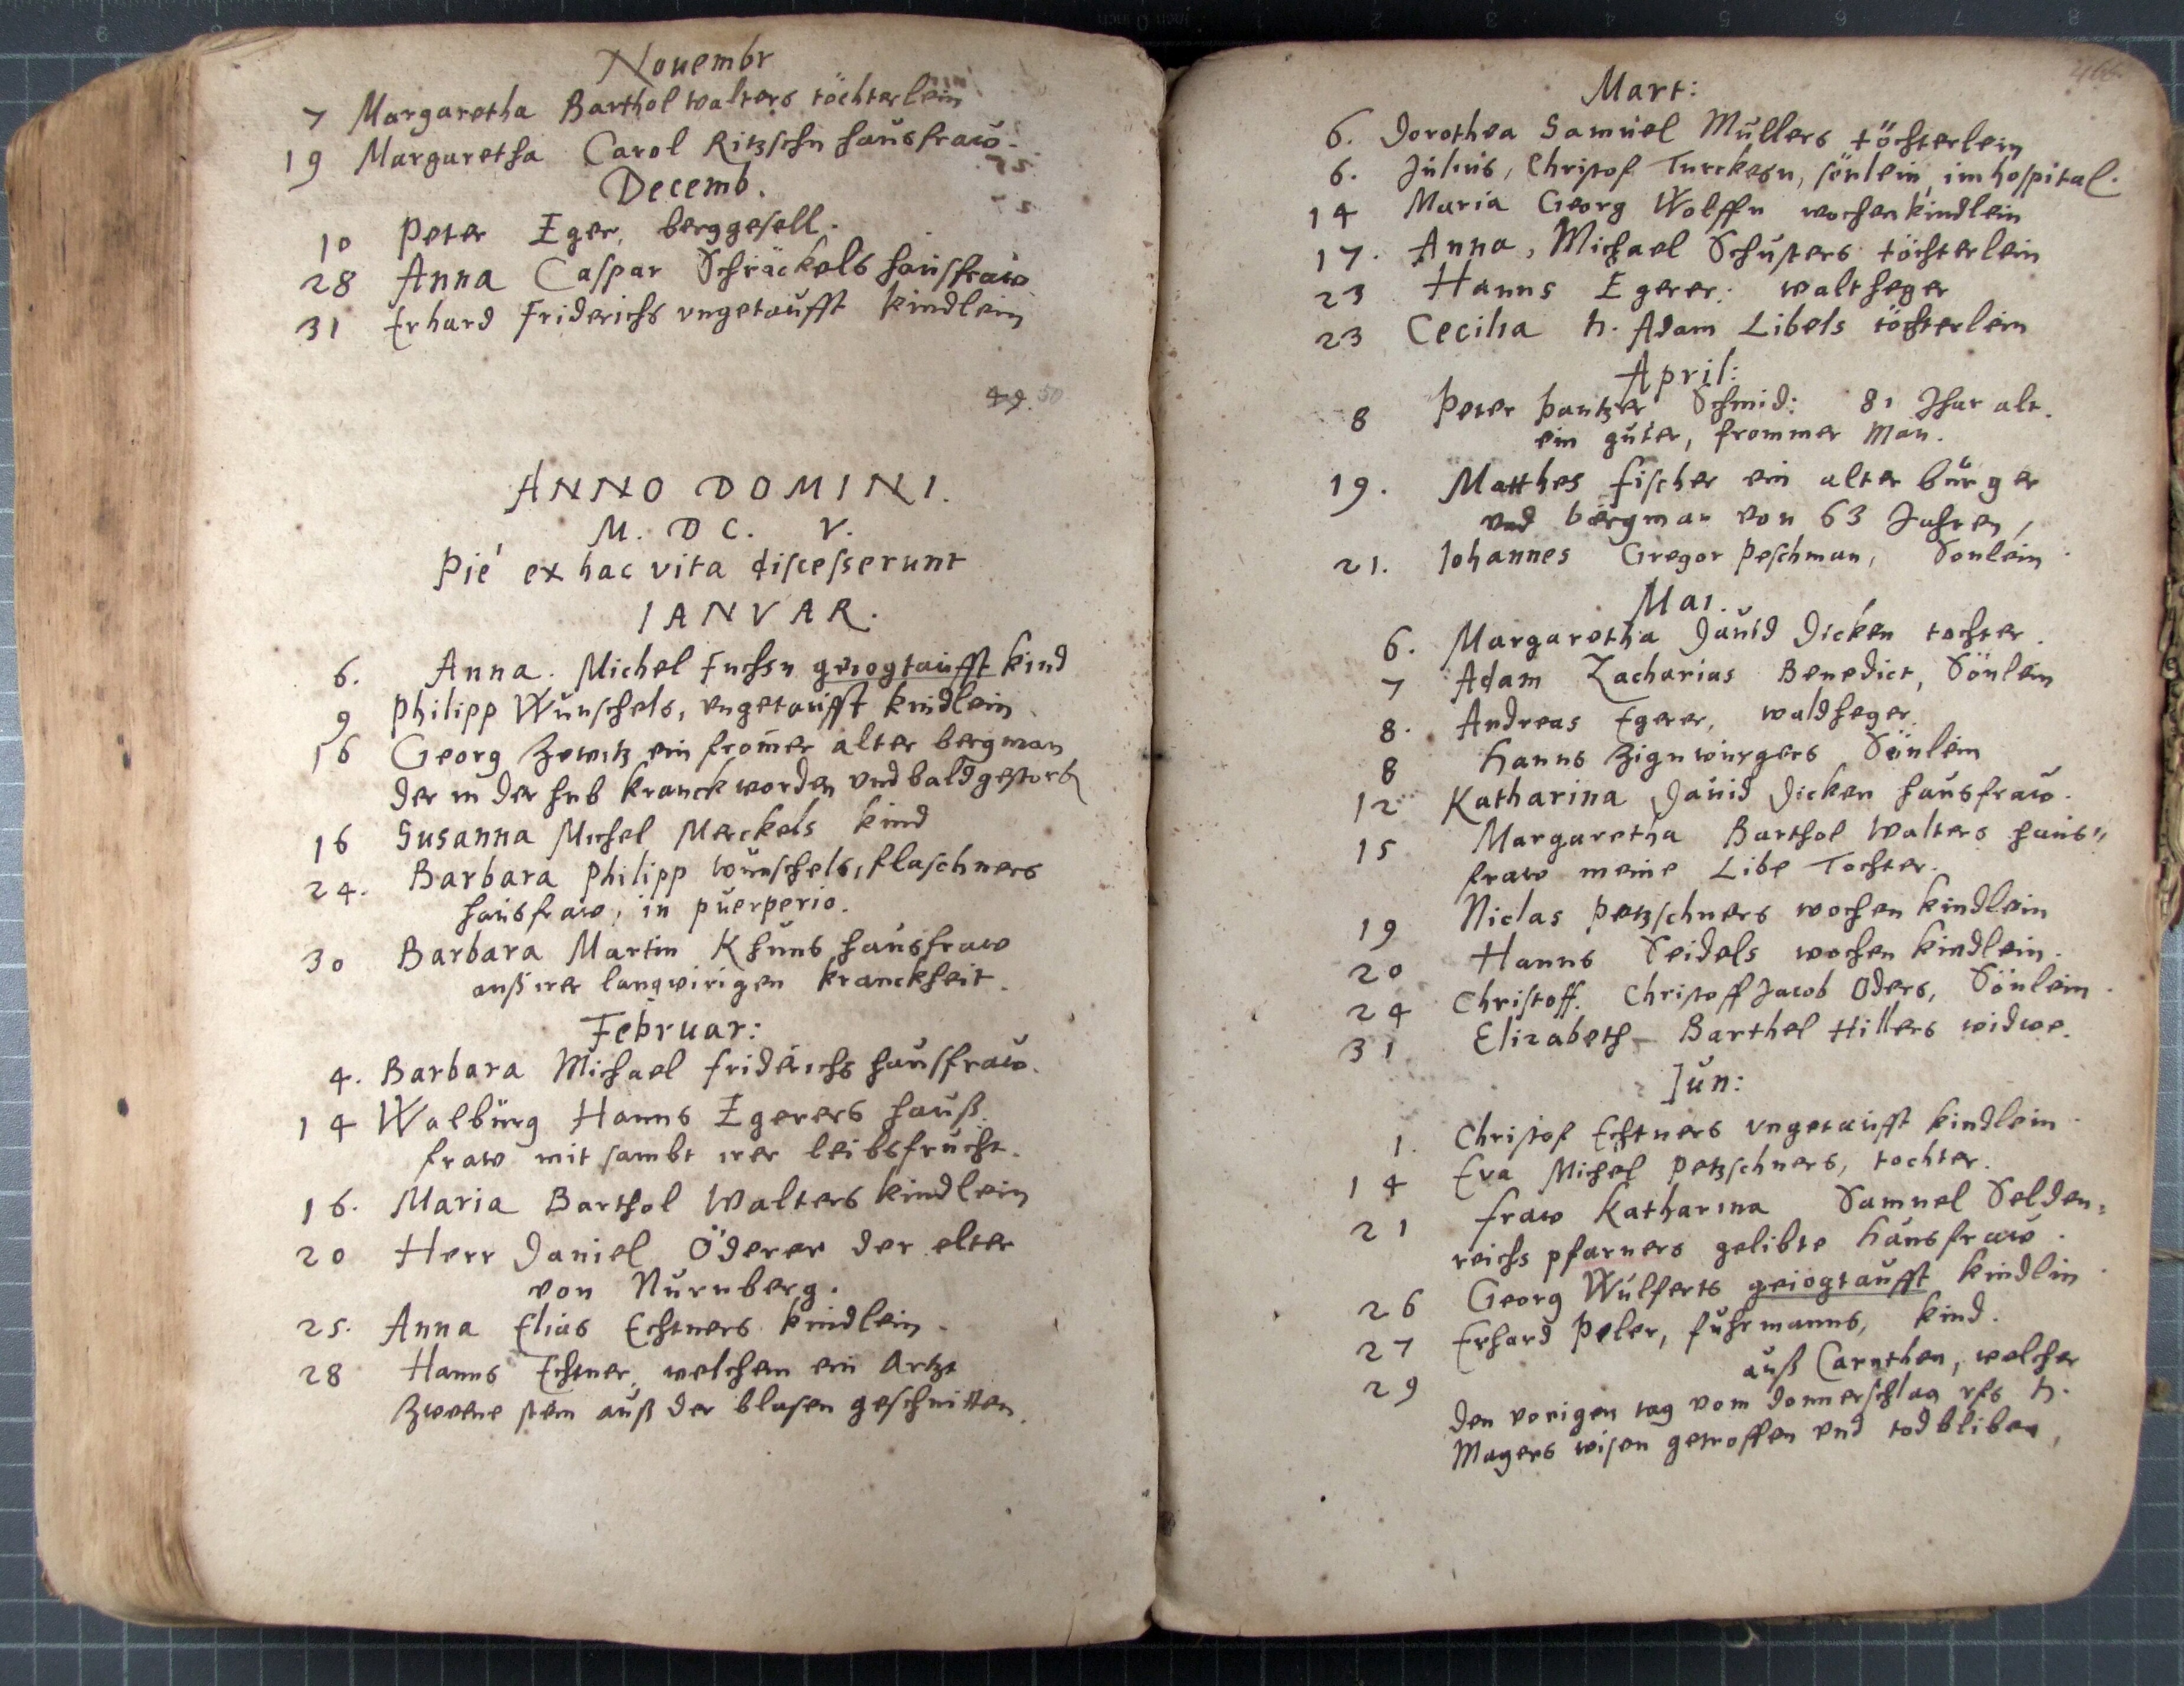 Nouembr
7 Margaretha Barthol walters töchterlein
19 Margaretha Carol Ritzschn hausfraw.
Decemb.
10 Peter Eger, berggesell.
28 Anna Caspar Schräckels hausfraw
31 Erhard Friderichs vngetaufft kindlein
49. 50
ANNO DOMINI.
M. DC. V.
Pié ex hac vita discesserunt
IANVAR.
6. Anna. Michel Fuchsn geiogtaufft kind
9 Philipp Wunschels, vngetaufft kindlein
16 Georg Zewitz ein from̄er alter bergman
der in der hub kranck worden vnd bald gestorb
16 Susanna Michel Merckels kind
24. Barbara Philipp wunschels, flaschners
hausfraw, in puerperio.
30 Barbara Martin Khuns hausfraw
auß irer langwirigen kranckheit.
Februar:
4. Barbara Michael friderichs hausfraw.
14 Walburg Hanns Egerers hauß
fraw mit sambt irer leibsfrucht.
16. Maria Barthol Walters kindlein
20 Herr Daniel Öderer der elter
von Nurnberg.
25. Anna Elias Echtners kindlein.
28 Hanns Echtner, welchem ein artzt
zweene stein auß der blasen geschnitten.
Mart:
6. Dorothea Samuel Mullers töchterlein
6. Julius, Christof Turckesn, sönlein, im hospital.
14 Maria Georg Wolffn wochenkindlein
17. Anna, Michael Schusters töchterlein
23 Hanns Egerer: waltheger
23 Cecilia h. Adam Libels töchterlein
April:
8 Peter Pantzer Schmid: 81 Jhar alt.
ein guter, frommer Man.
19. Matthes fischer ein alter burger
vnd bergman von 63 Jahren,
21. Iohannes Gregor Peschman, Sonlein.
Mai.
6. Margaretha Dauid Dicken tochter.
7 Adam Zacharias Benedict, Sönlein
8. Andreas Egerer, waldheger.
8 Hanns Zignwurgers Sönlein
12 Katharina Dauid Dicken hausfraw.
15 Margaretha Barthol Walters haus"
fraw meine Libe Tochter.
19 Niclas Petzschners wochen kindlein
20 Hanns Seidels wochen kindlein.
24 Christoff. Christoff Jacob Öders, Sönlein.
31 Elizabeth Barthel Hillers widwe.
Jun:
1. Christof Echtners vngetaufft kindlein.
14 Eva Michel Petzschners, tochter.
21 fraw Katharina Samuel Selden:
reichs pfarners gelibte hausfraw.
26 Georg Wulferts geiogtaufft kindlin.
27 Erhard Peler, fuhrmanns, kind.
29 auß Carnthen, welcher
den vorigen tag vom donnerschlag vfs h.
Magers wisen getroffen vnd tod bliben,